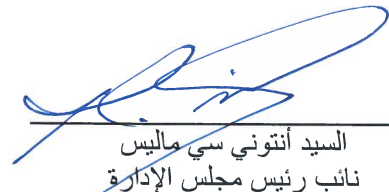 السيد أنتوني سي ماليس
نائب رئيس مجلس الإدارة